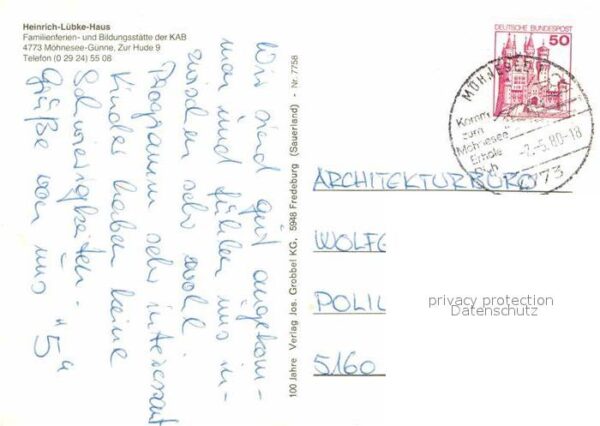 Heinrich-Lübke-Haus
Familienferien- und Bildungsstätte der KAB
4773 Möhnesee-Günne, Zur Hude 9
Telefon (0 29 24) 55 08
Wir sind gut angekom-
men und fühlen uns in-
zwischen sehr wohl
Programm sehr interessant
Kinder haben keine
Schwierigkeiten.
Grüße von uns "5"
100 Jahre Verlag Jos. Grobbel KG, 5948 Fredeburg (Sauerland) - Nr. 7758
DEUTSCHE BUNDESPOST
50
MÖHNESEE
Komm
zum
Möhnesee
Erhole
Dich
-7.-5.80-18
4773
ARCHITEKTURBÜRO
WOLFG
POLIL
5160
privacy protection
Datenschutz